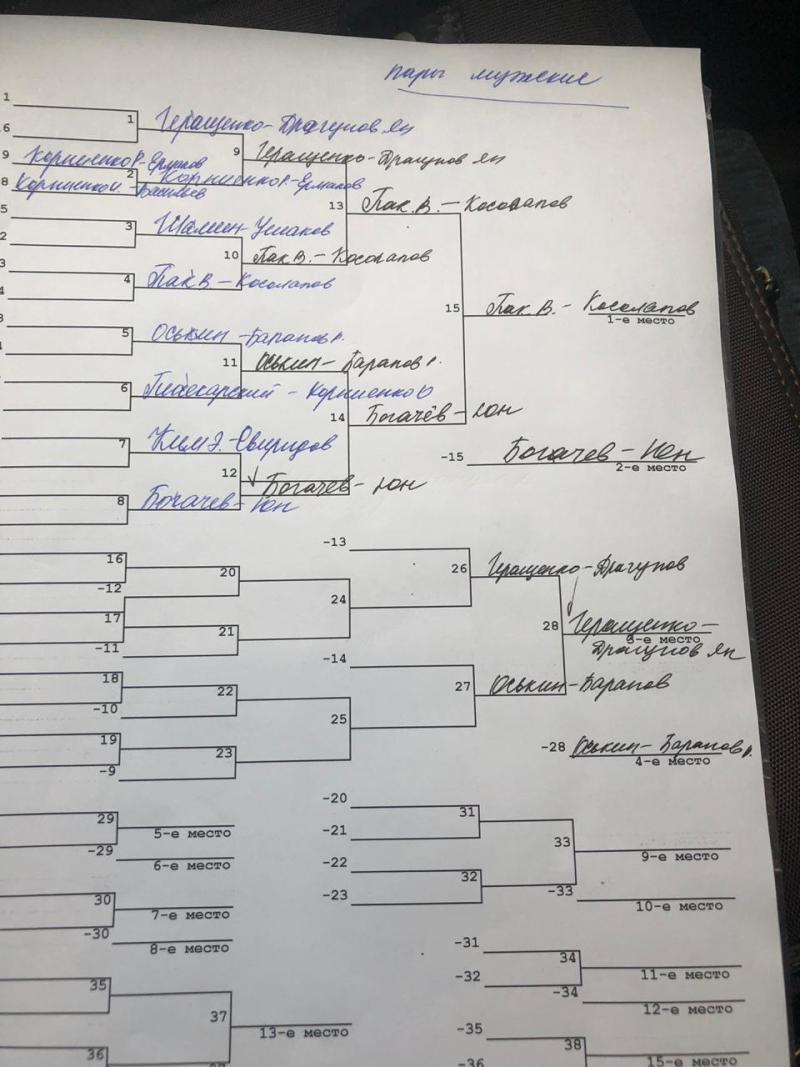 пары мужские
1
1 Геращенко-Драгунов Ян
6
9 Геращенко-Драгунов Ян
9 Корниенко Р-Ермаков
2 Корниенко Р.-Ермаков
8 Корниенко И.-Васильев
13 Пак.В.-Косолапов
5
3 Шамин-Ушаков
2
10 Пак В.-Косолапов
3
4 Пак В-Косолапов
15 Пак.В.-Косолапов
1-е место
5 Оськин-Баранов
11 Оськин-Баранов
6 Корниенко Ю
14 Богачёв-Юн
7 Ким Э.-Свиридов
-15 Богачев-Юн
2-е место
12 Богачев-Юн
8 Богачев-Юн
-13
16
26 Геращенко-Драгунов
20
-12
24
17
28 Геращенко-
3-е место
Драгунов Ян
21
-11
-14
18
27 Оськин-Баранов
22
-10
25
19
-28 Оськин-Баранов
4-е место
23
-9
-20
29
31
5-е место
-21
33
-29
9-е место
6-е место
-22
32
30
-33
-23
10-е место
7-е место
-30
8-е место
-31
34
11-е место
-32
-34
35
12-е место
37
13-е место
-35
38
15-е место
36
-36